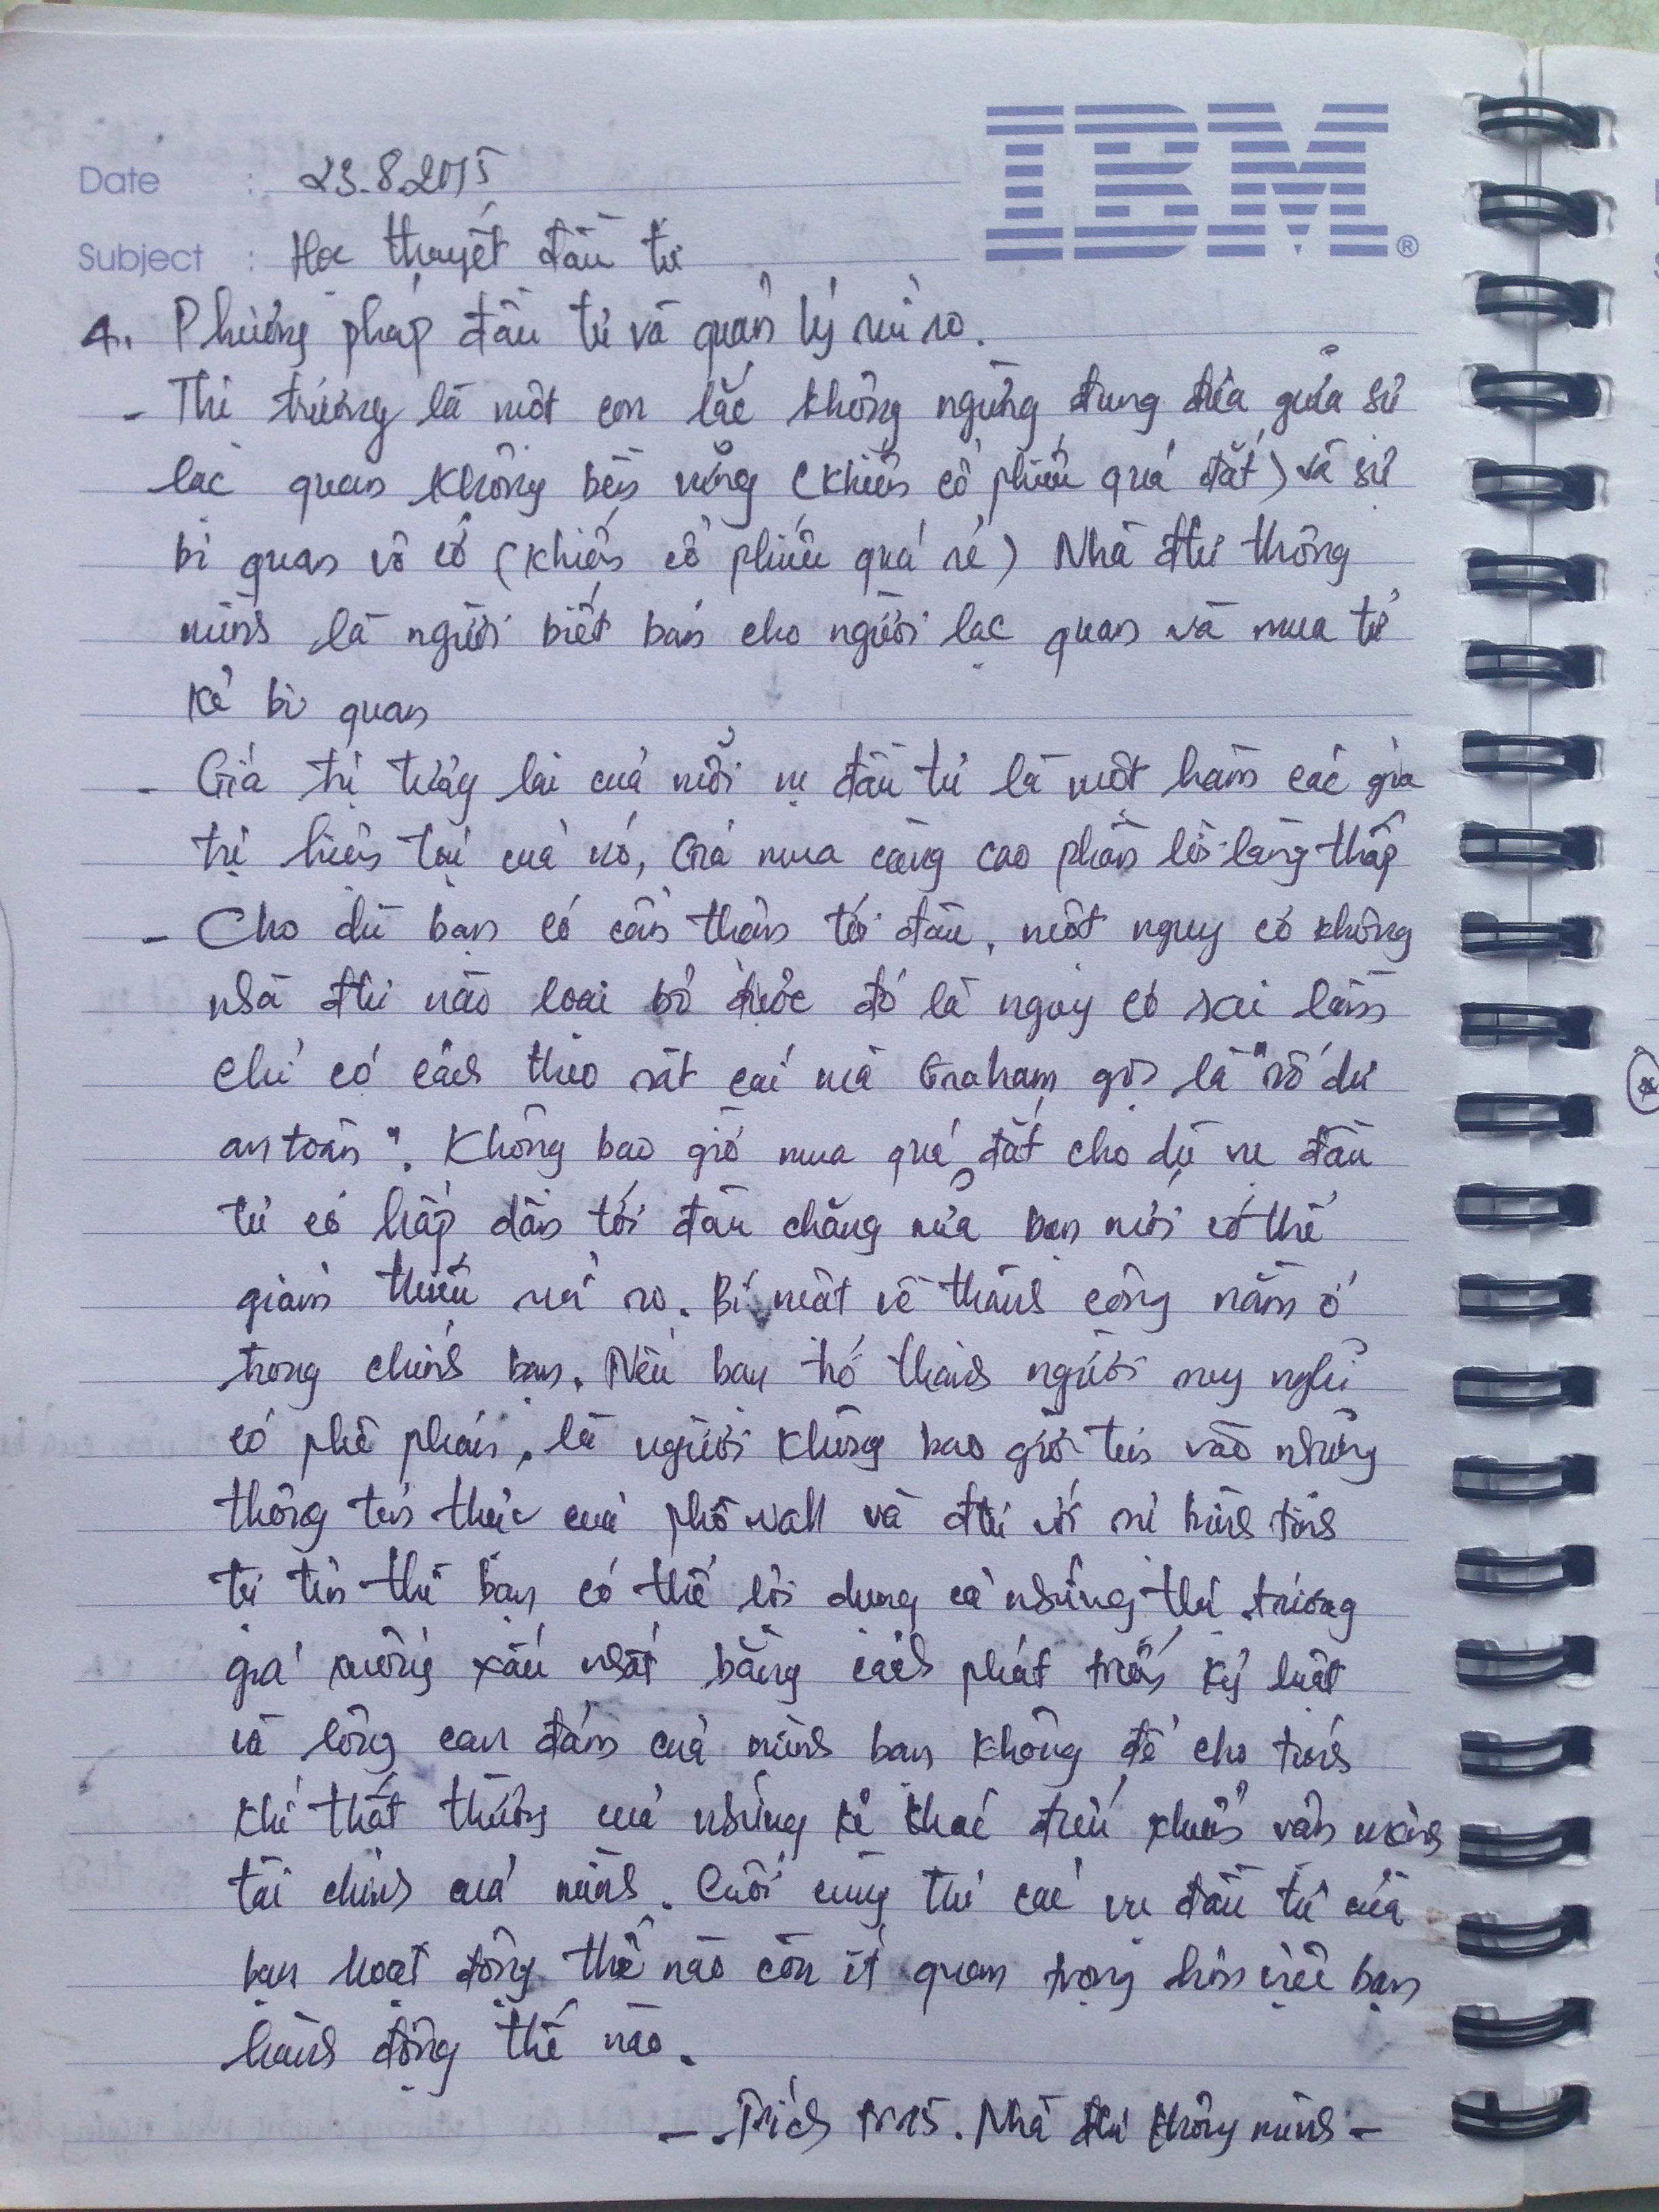 IBM®
Date : 23.8.2015
Subject : Học thuyết đầu tư
4. Phương pháp đầu tư và quản lý rủi ro.
- Thị trường là một con lắc không ngừng đung đưa giữa sự
lạc quan không bền vững (khiến cổ phiếu quá đắt) và sự
bi quan vô cớ (khiến cổ phiếu quá rẻ) Nhà đtư thông
minh là người biết bán cho người lạc quan và mua từ
kẻ bi quan
- Giá trị tương lai của mỗi vụ đầu tư là một hàm các giá
trị hiện tại của nó, Giá mua càng cao phần lời càng thấp
- Cho dù bạn có cẩn thận tới đâu, một nguy cơ không
nhà đtư nào loại bỏ được đó là nguy cơ sai lầm
chỉ có cách theo sát cái mà Graham gọi là "số dư
an toàn". Không bao giờ mua quá đắt cho dù vụ đầu
tư có hấp dẫn tới đâu chăng nữa bạn mới có thể
giảm thiểu rủi ro. Bí mật về thành công nằm ở
trong chính bạn. Nếu bạn trở thành người suy nghĩ
có phê phán, là người không bao giờ tin vào những
thông tin thức của phố wall và đtư với sự bình tĩnh
tự tin thì bạn có thể lợi dụng cả những thị trường
giá xuống xấu nhất bằng cách phát triển kỷ luật
và lòng can đảm của mình bạn không để cho tính
khí thất thường của những kẻ khác điều khiển vận mạng
tài chính của mình. Cuối cùng thì các vụ đầu tư của
bạn hoạt động thế nào còn ít quan trọng hơn việc bạn
hành động thế nào.
- Trích tr15. Nhà đtư thông minh -